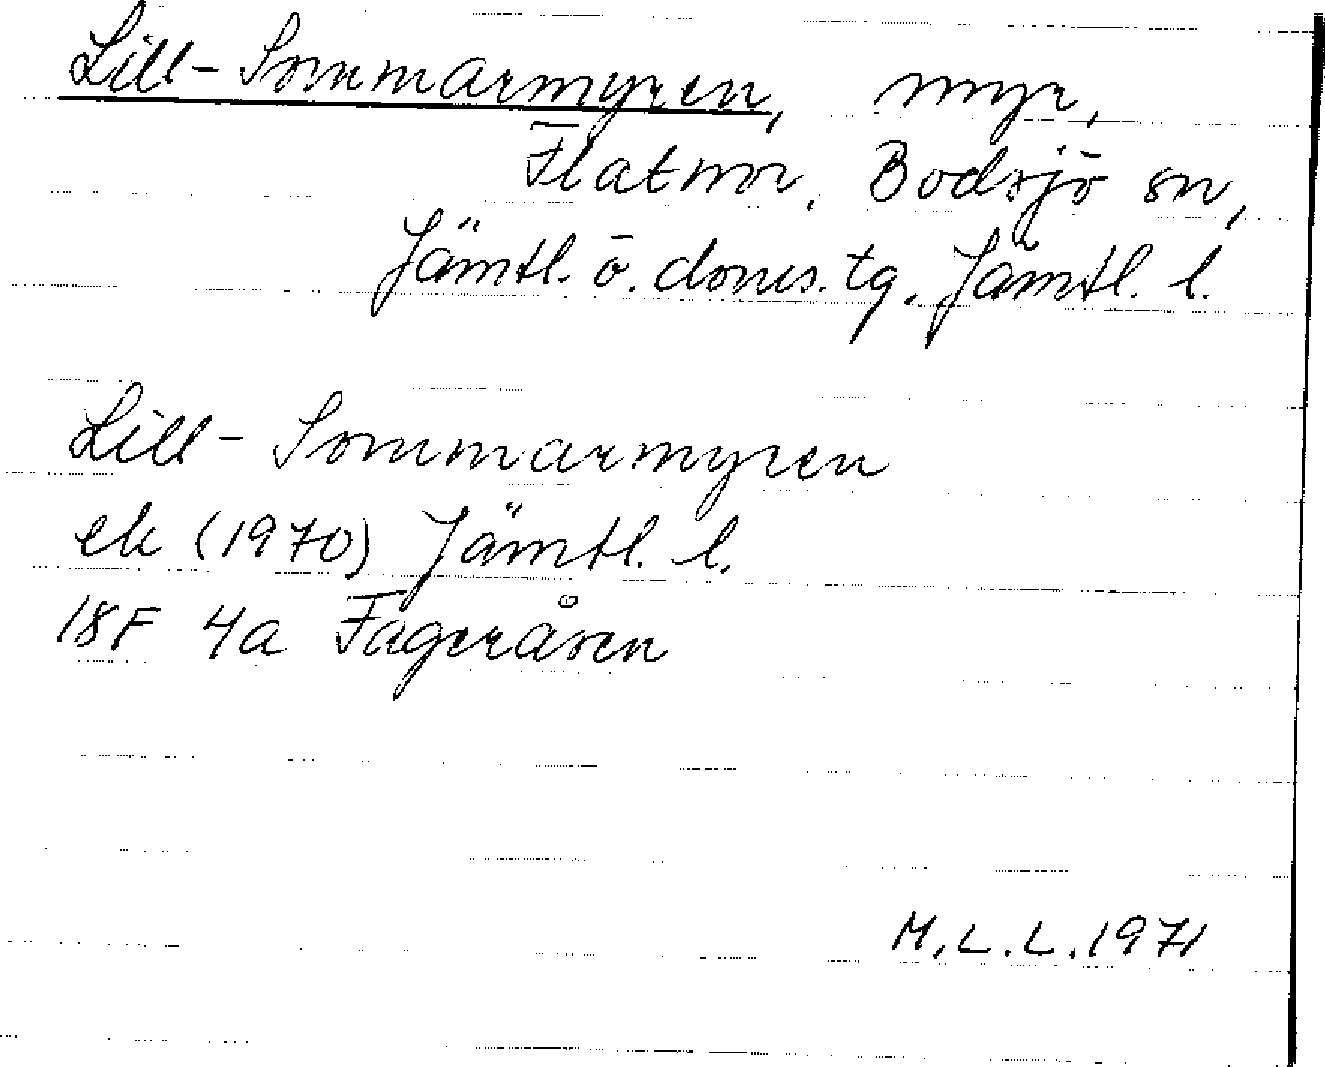 Lill-Sommarmyren, myr,
Flatnor, Bodsjö sn,
Jämtl. ö. doms. tg. Jämtl. l.
Lill-Sommarmyren
ek (1970) Jämtl. l.
18F 4a Fageråsen
M.L.L. 1971